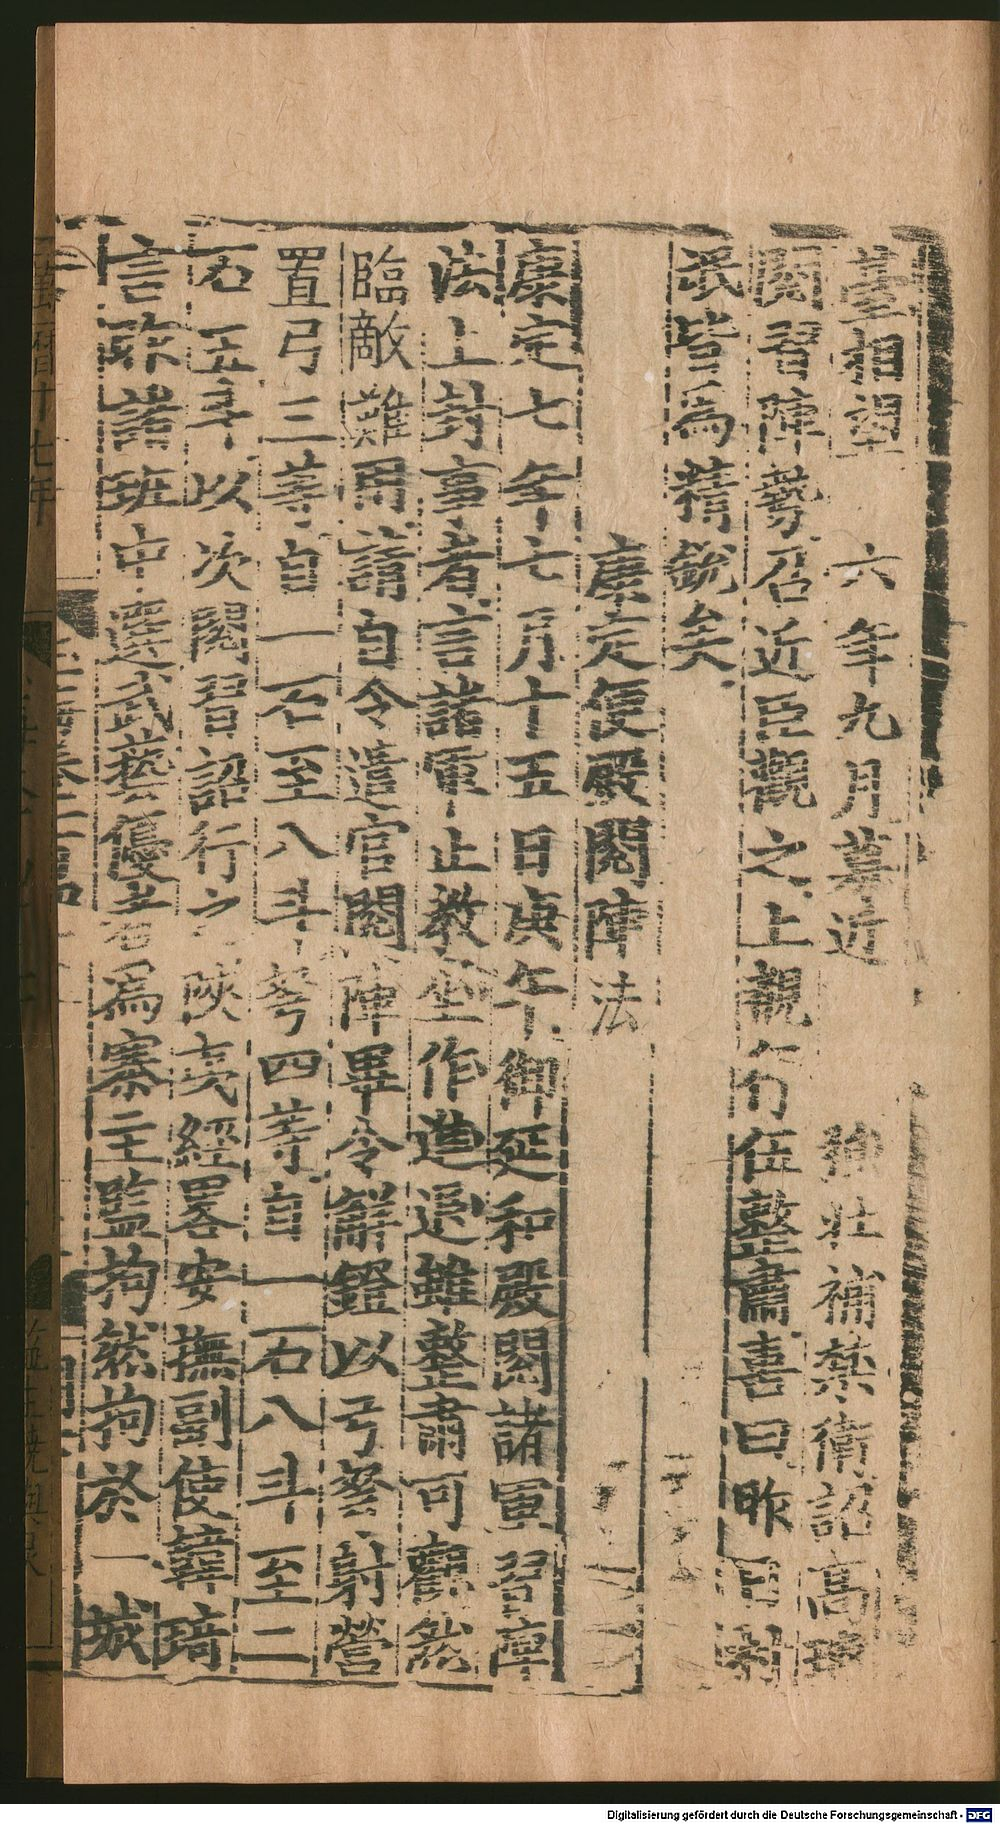 臺相望 六年九月募近 強壯補禁衛詔高瓊
閱習陣勢召近臣觀之上觀行伍整肅喜曰昨日村
民皆為精銳矣
康定便殿閱陣法
康定七年七月十五日庚午御延和殿閱諸軍習陣
法上封事者言諸軍止教坐作進退雖整肅可觀然
臨敵難用請自令遣官閱陣畢令解鐙以弓弩射營
置弓三等自一石至八斗弩四等自二石八斗至二
石五斗以次閱習詔行之 陝亮經畧安撫副使韓琦
言昨諸班中選武藝優者為寨主監押然拘於一城
玉海卷
Digitalisierung gefördert durch die Deutsche Forschungsgemeinschaft - DFG